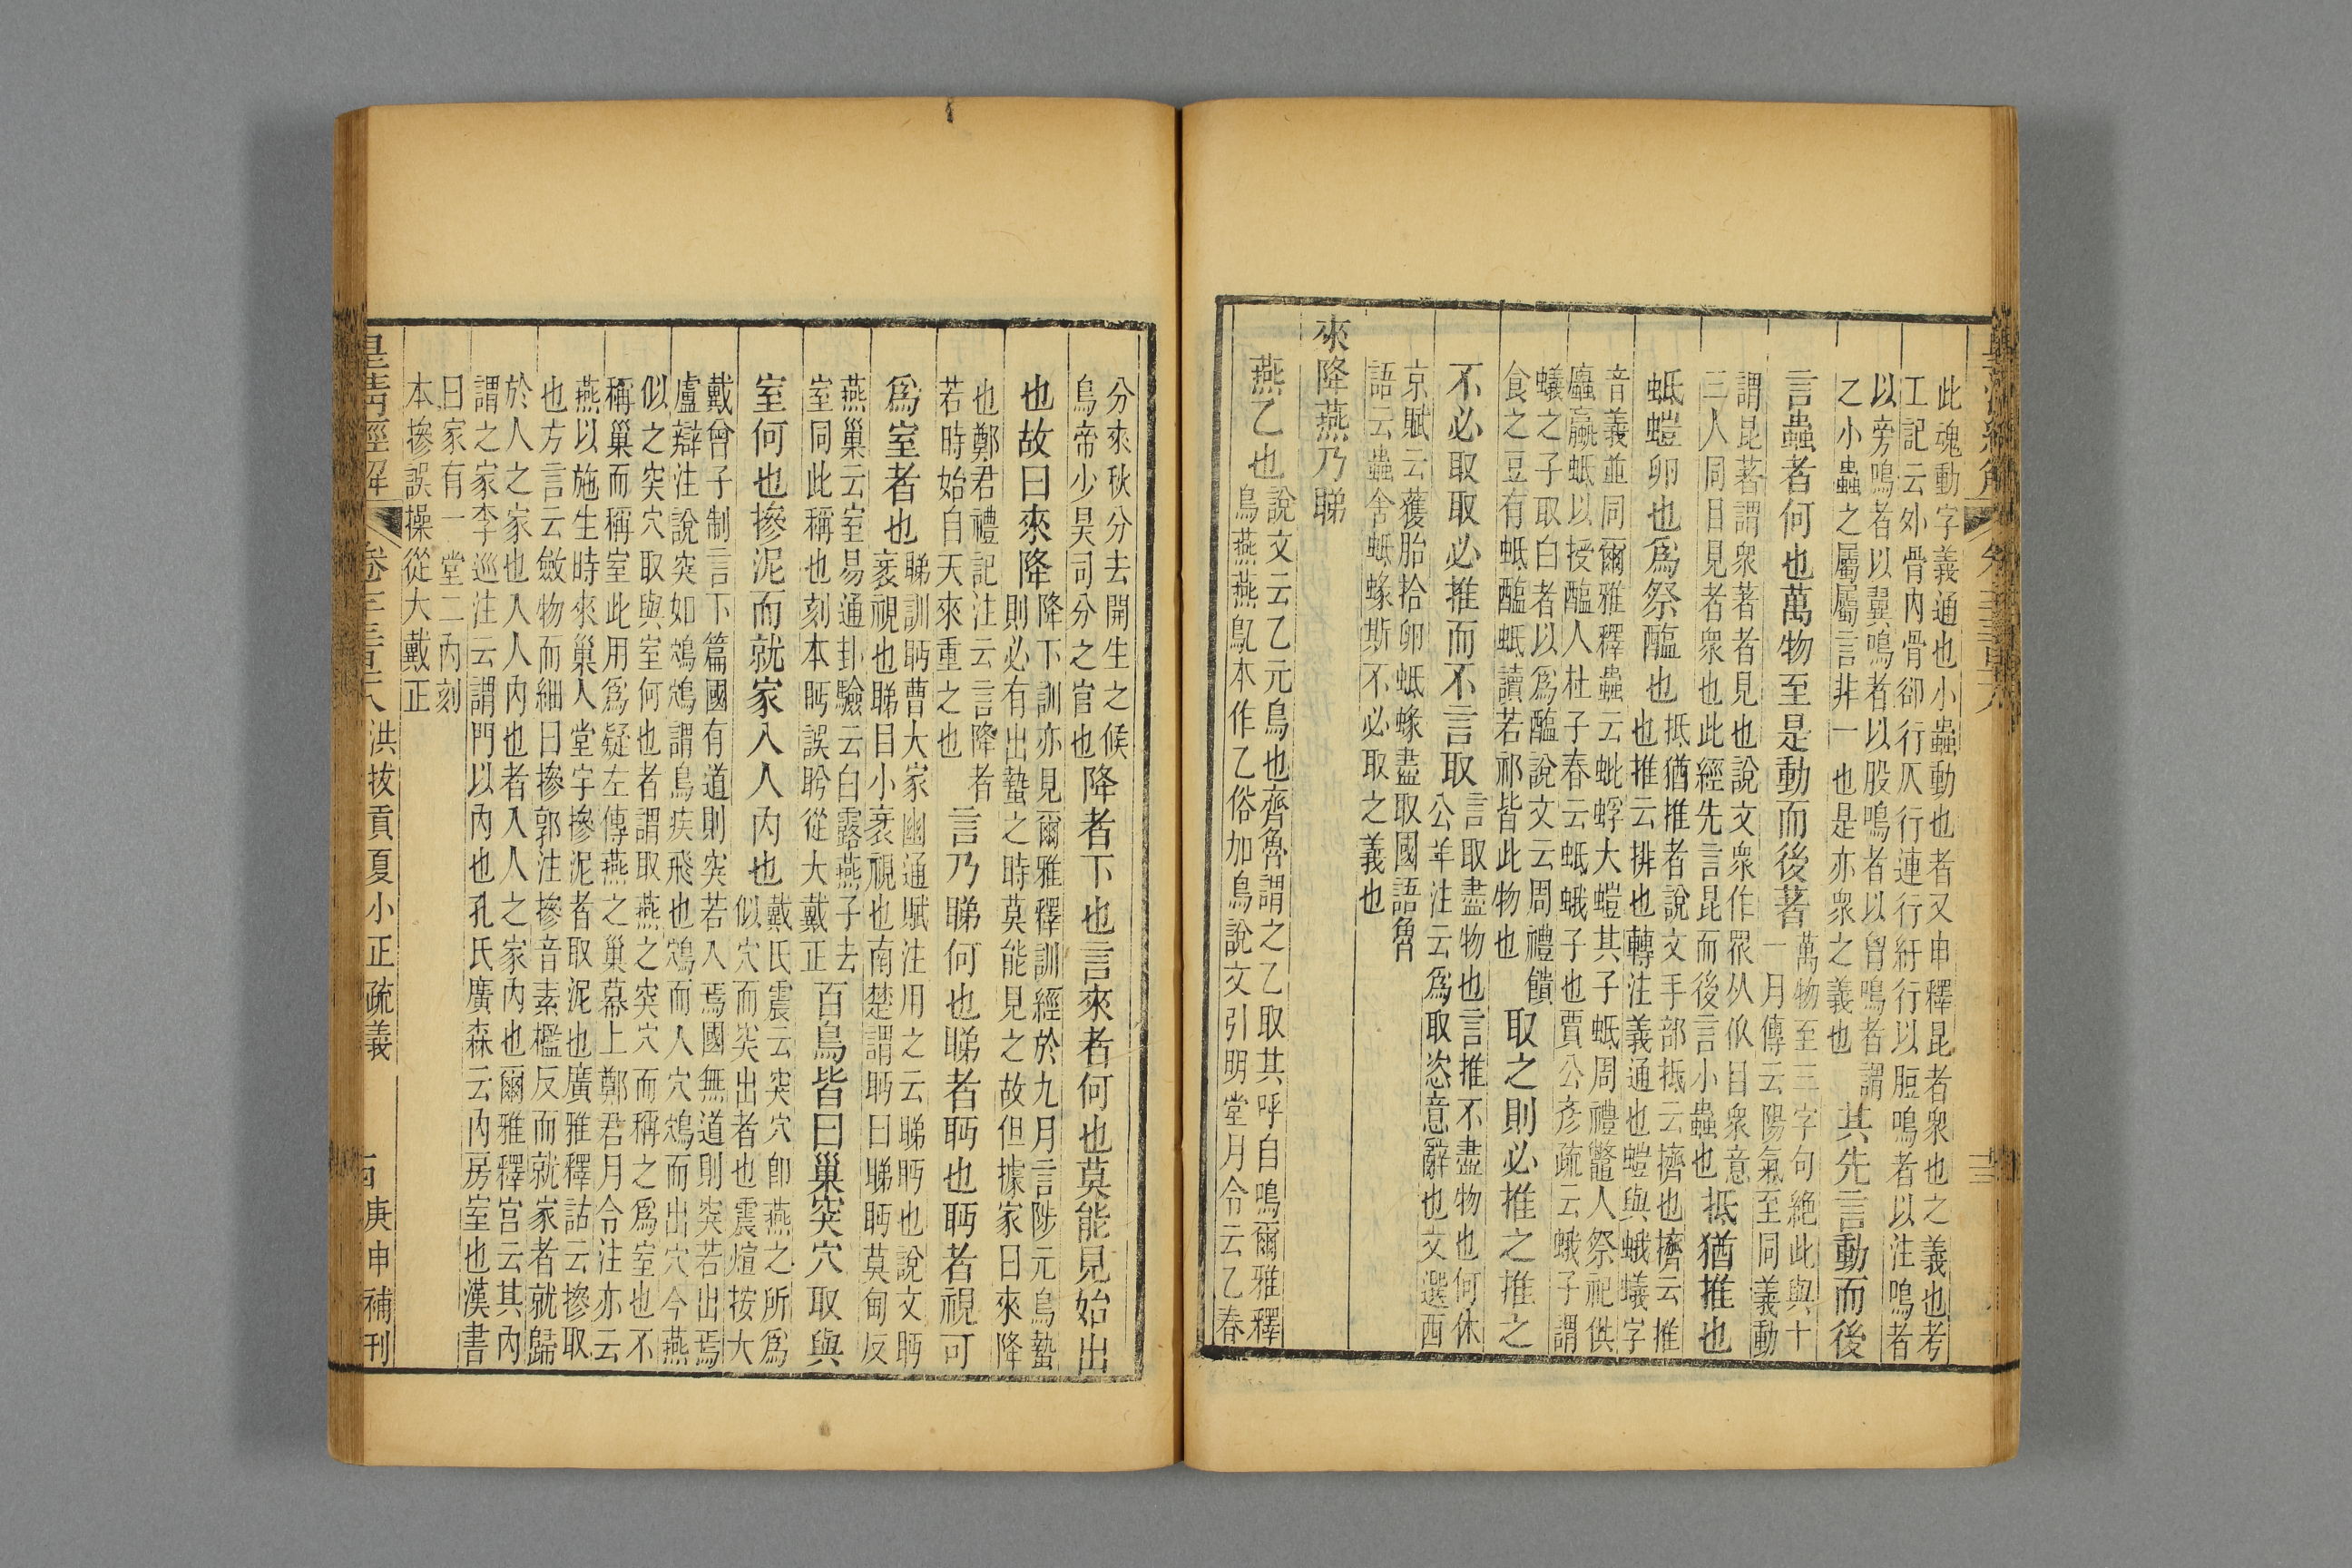 此魂動字義通也小蟲動也者又申釋昆者衆也之義也考
工記云外骨內骨卻行仄行連行紆行以脰鳴者以注鳴者
以旁鳴者以翼鳴者以股鳴者以胷鳴者謂
之小蟲之屬屬言非一也是亦衆之義也
其先言動而後
言蟲者何也萬物至是動而後著
萬物至三字句絶此與十
一月傳云陽氣至同義動
謂昆著謂衆著者見也說文衆作眾从㐺目衆意
三人同目見者衆也此經先言昆而後言小蟲也
抵猶推也
蚳螘卵也爲祭醢也
抵猶推者說文手部抵云擠也擠云推
也推云排也轉注義通也螘與蛾蟻字
音義並同爾雅釋蟲云蚍蜉大螘其子蚳周禮鼈人祭祀供
蠯蠃蚳以授醢人杜子春云蚳蛾子也賈公彦疏云蛾子謂
蟻之子取白者以爲醢說文云周禮饋
食之豆有蚳醢蚳讀若祁皆此物也
取之則必推之推之
不必取取必推而不言取
言取盡物也言推不盡物也何休
公羊注云爲取恣意辭也文選西
京賦云蒦胎拾卵蚳蝝盡取國語魯
語云蟲舍蚳蝝斯不必取之義也
來降燕乃睇
燕乙也
說文云乙元鳥也齊魯謂之乙取其呼自鳴爾雅釋
鳥燕燕鳦本作乙俗加鳥說文引明堂月令云乙春
分來秋分去開生之候
鳥帝少昊司分之官也
降者下也言來者何也莫能見始出
也故曰來降
降下訓亦見爾雅釋訓經於九月言陟元鳥蟄
則必有出蟄之時莫能見之故但據家曰來降
也鄭君禮記注云言降者
若時始自天來重之也
言乃睇何也睇者眄也眄者視可
爲室者也
睇訓眄曹大家幽通賦注用之云睇眄也說文眄
衺視也睇目小衺視也南楚謂眄曰睇眄莫甸反
燕巢云室易通卦驗云白露燕子去
室同此稱也刻本眄誤盻從大戴正
百鳥皆曰巢突穴取與
室何也摻泥而就家入人內也
戴氏震云突穴卽燕之所爲
似穴而突出者也震煊按大
戴曾子制言下篇國有道則突若入焉國無道則突若出焉
盧辯注說突如鴆鴆謂鳥疾飛也鴆而人穴鴆而出穴今燕
似之突穴取與室何也者謂取燕之突穴而稱之爲室也不
稱巢而稱室此用爲疑左傳燕之巢幕上鄭君月令注亦云
燕以施生時來巢人堂宇摻泥者取泥也廣雅釋詁云摻取
也方言云斂物而細曰摻郭注摻音素檻反而就家者就歸
於人之家也人人內也者入人之家內也爾雅釋宮云其內
謂之家李巡注云謂門以內也孔氏廣森云內房室也漢書
曰家有一堂二內刻
本摻誤操從大戴正
皇清經解
洪拔貢夏小正疏義
庚申補刊